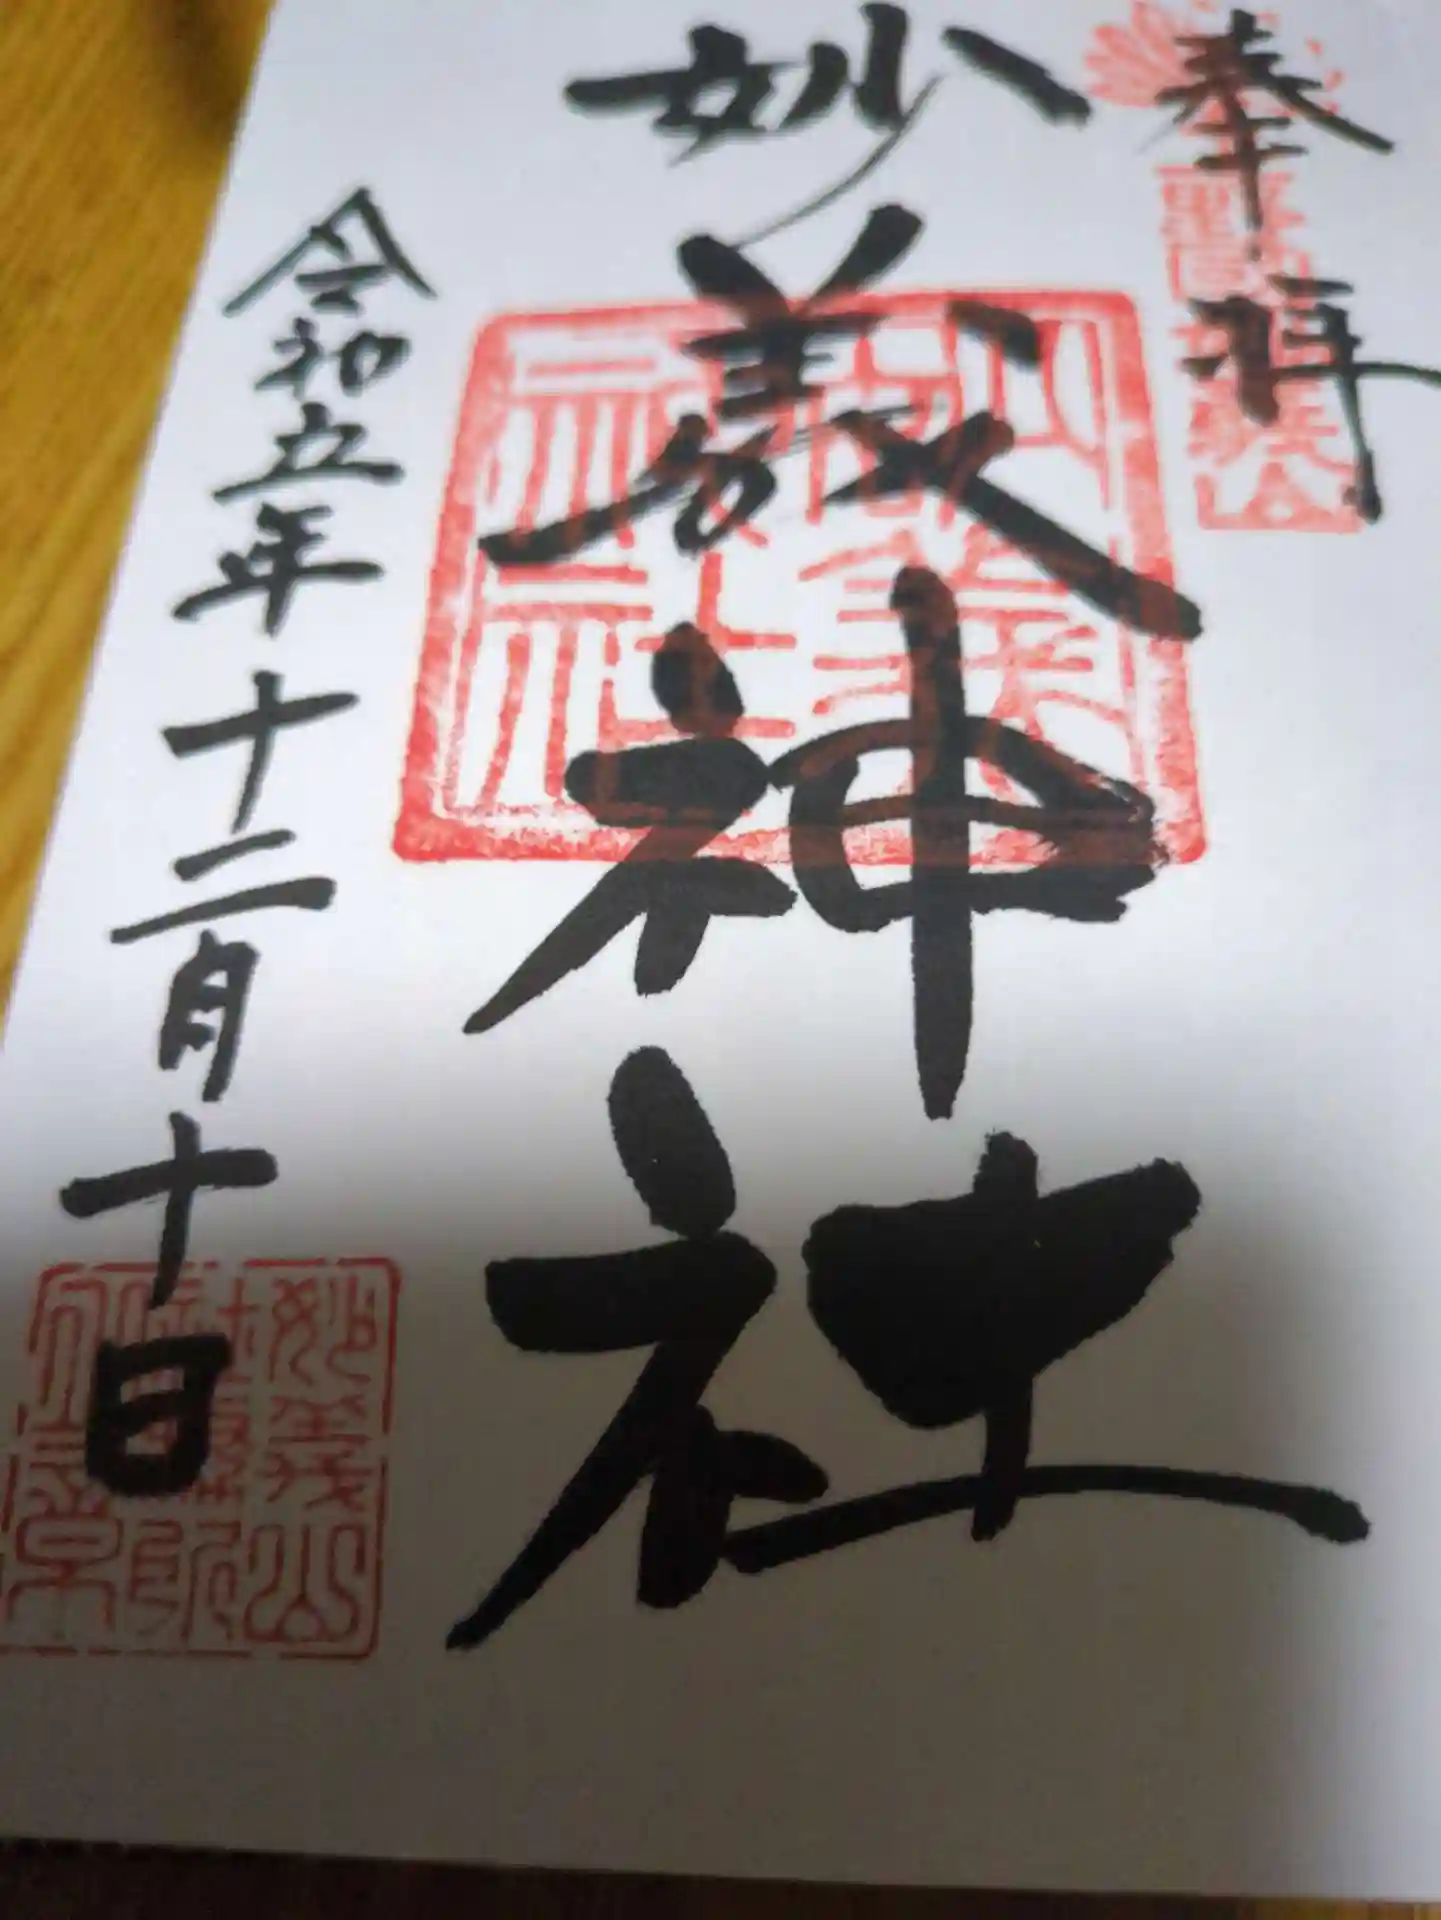 奉拝
妙義神社
妙義神社
令和五年十二月十日
妙義山
社務所